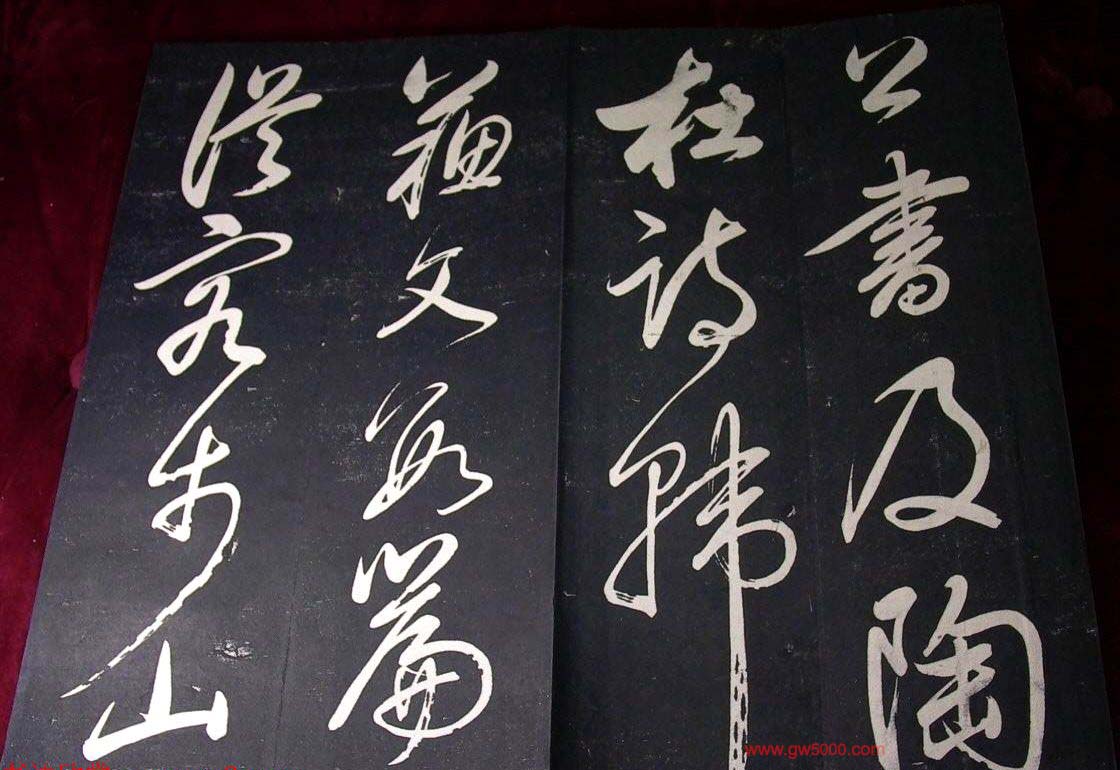 公書及陶
杜詩韓
蘇文數篇
從容步山
www.gw5000.com